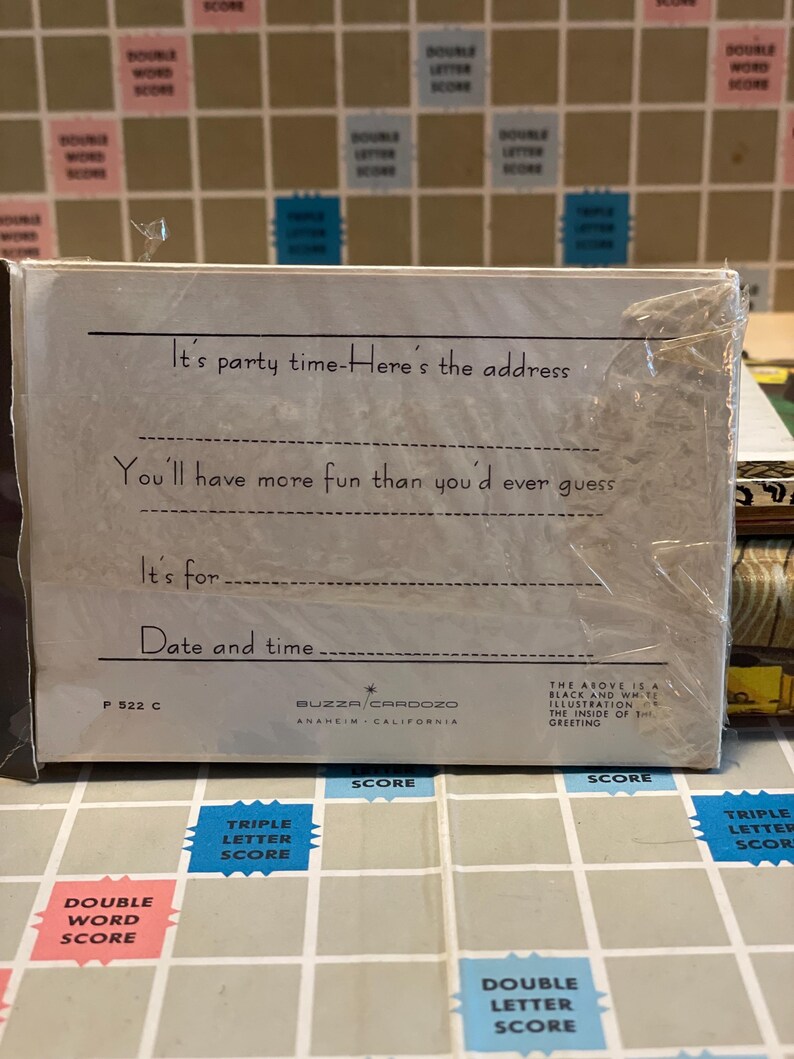 SCORE
DOUBLE WORD SCORE
DOUBLE LETTER SCORE
DOUBLE WORD SCORE
DOUBLE WORD SCORE
DOUBLE LETTER SCORE
DOUBLE LETTER SCORE
DOUBLE WORD SCORE
TRIPLE LETTER SCORE
TRIPLE LETTER SCORE
It's party time-Here's the address
You'll have more fun than you'd ever guess
It's for
Date and time
P 522 C
BUZZA/CARDOZO
ANAHEIM · CALIFORNIA
THE ABOVE IS A
BLACK AND WHITE
ILLUSTRATION OF
THE INSIDE OF THE
GREETING
LETTER
SCORE
SCORE
TRIPLE
LETTER
SCORE
TRIPLE
LETTER
SCORE
DOUBLE
WORD
SCORE
DOUBLE
LETTER
SCORE